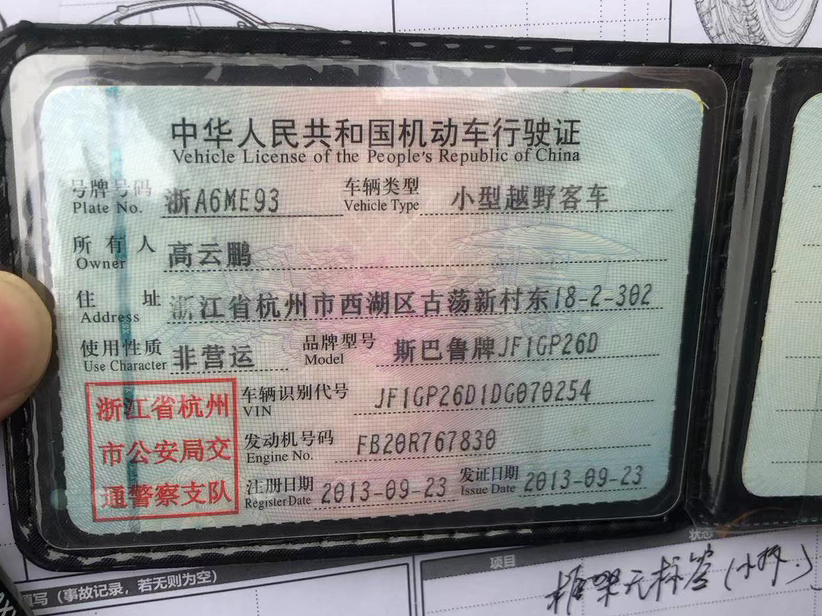 中华人民共和国机动车行驶证
Vehicle License of the People's Republic of China
号牌号码 浙A6ME93 车辆类型 小型越野客车
Plate No. Vehicle Type
所有人 高云鹏
Owner
住址 浙江省杭州市西湖区古荡新村东18-2-302
Address
使用性质 非营运 品牌型号 斯巴鲁牌JF1GP26D
Use Character Model
浙江省杭州
市公安局交
通警察支队
车辆识别代号 JF1GP26D1DG070254
VIN
发动机号码 FB20R767830
Engine No.
注册日期 2013-09-23 发证日期 2013-09-23
Register Date Issue Date
填写（事故记录，若无则为空）
项目
状态
框架无标签(小拆.)